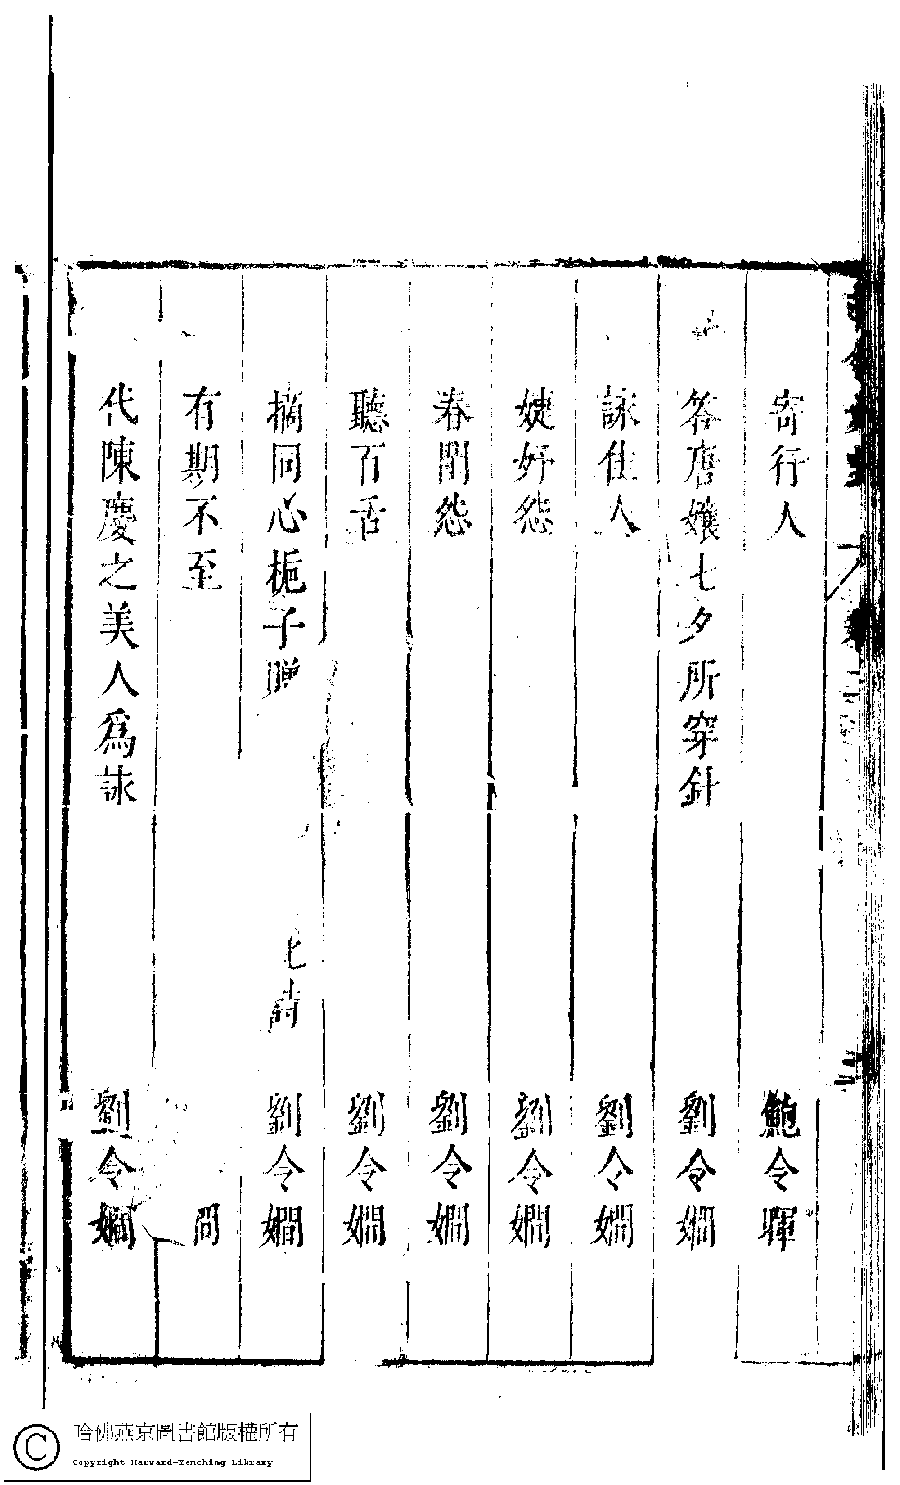 寄行人 鮑令暉
答唐孃七夕所穿針 劉令嫺
詠佳人 劉令嫺
婕妤怨 劉令嫺
春閨怨 劉令嫺
聽百舌 劉令嫺
摘同心梔子贈 詩 劉令嫺
有期不至
代陳慶之美人為詠 劉令嫺
哈佛燕京圖書館版權所有
Copyright Harvard-Yenching Library